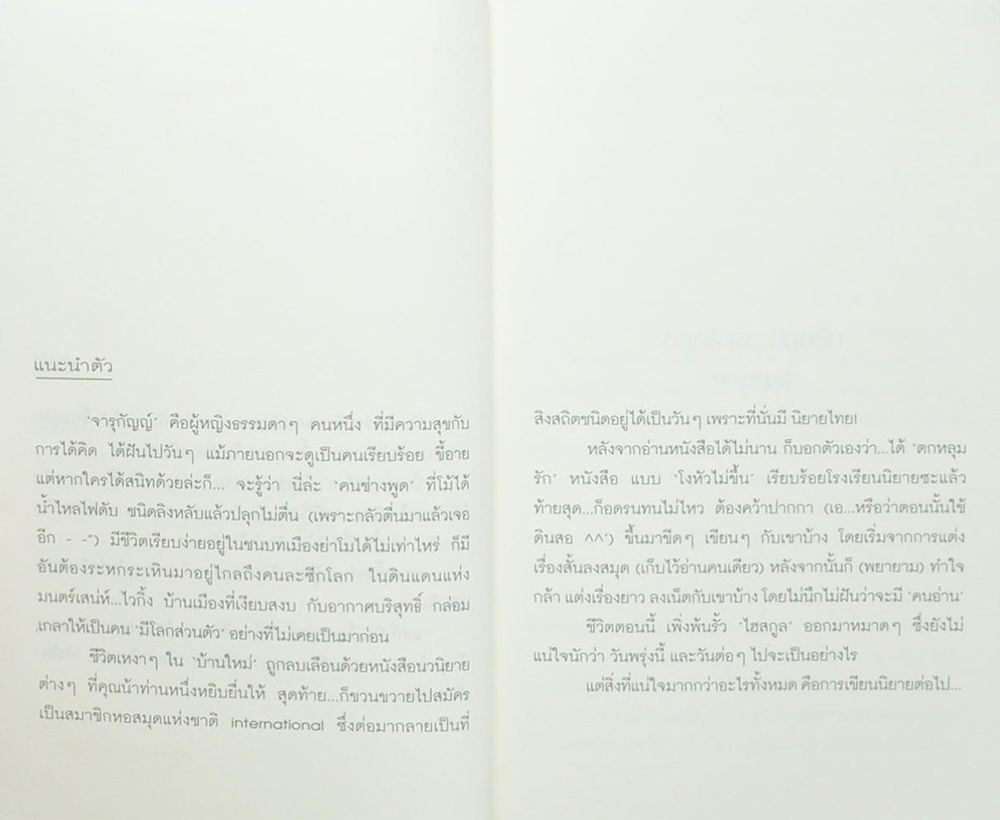 แนะนำตัว
'จารุกัญญ์' คือผู้หญิงธรรมดาๆ คนหนึ่ง ที่มีความสุขกับ
การได้คิด ได้ฝันไปวันๆ แม้ภายนอกจะดูเป็นคนเรียบร้อย ขี้อาย
แต่หากใครได้สนิทด้วยล่ะก็... จะรู้ว่า นี่ล่ะ 'คนช่างพูด' ที่โม้ได้
น้ำไหลไฟดับ ชนิดลิงหลับแล้วปลุกไม่ตื่น (เพราะกลัวตื่นมาแล้วเจอ
อีก - -") มีชีวิตเรียบง่ายอยู่ในชนบทเมืองย่าโมได้ไม่เท่าไหร่ ก็มี
อันต้องระหกระเหินมาอยู่ไกลถึงคนละซีกโลก ในดินแดนแห่ง
มนตร์เสน่ห์...ไวกิ้ง บ้านเมืองที่เงียบสงบ กับอากาศบริสุทธิ์ กล่อม
เกลาให้เป็นคน 'มีโลกส่วนตัว' อย่างที่ไม่เคยเป็นมาก่อน
ชีวิตเหงาๆ ใน 'บ้านใหม่' ถูกลบเลือนด้วยหนังสือนวนิยาย
ต่างๆ ที่คุณน้าท่านหนึ่งหยิบยื่นให้ สุดท้าย...ก็ขวนขวายไปสมัคร
เป็นสมาชิกหอสมุดแห่งชาติ international ซึ่งต่อมากลายเป็นที่
สิงสถิตชนิดอยู่ได้เป็นวันๆ เพราะที่นั่นมี นิยายไทย!
หลังจากอ่านหนังสือได้ไม่นาน ก็บอกตัวเองว่า...ได้ 'ตกหลุม
รัก' หนังสือ แบบ 'โงหัวไม่ขึ้น' เรียบร้อยโรงเรียนนิยายซะแล้ว
ท้ายสุด...ก็อดรนทนไม่ไหว ต้องคว้าปากกา (เอ...หรือว่าตอนนั้นใช้
ดินสอ ^^') ขึ้นมาขีดๆ เขียนๆ กับเขาบ้าง โดยเริ่มจากการแต่ง
เรื่องสั้นลงสมุด (เก็บไว้อ่านคนเดียว) หลังจากนั้นก็ (พยายาม) ทำใจ
กล้า แต่งเรื่องยาว ลงเน็ตกับเขาบ้าง โดยไม่นึกไม่ฝันว่าจะมี 'คนอ่าน'
ชีวิตตอนนี้ เพิ่งพ้นรั้ว 'ไฮสกูล' ออกมาหมาดๆ ซึ่งยังไม่
แน่ใจนักว่า วันพรุ่งนี้ และวันต่อๆ ไปจะเป็นอย่างไร
แต่สิ่งที่แน่ใจมากกว่าอะไรทั้งหมด คือการเขียนนิยายต่อไป...